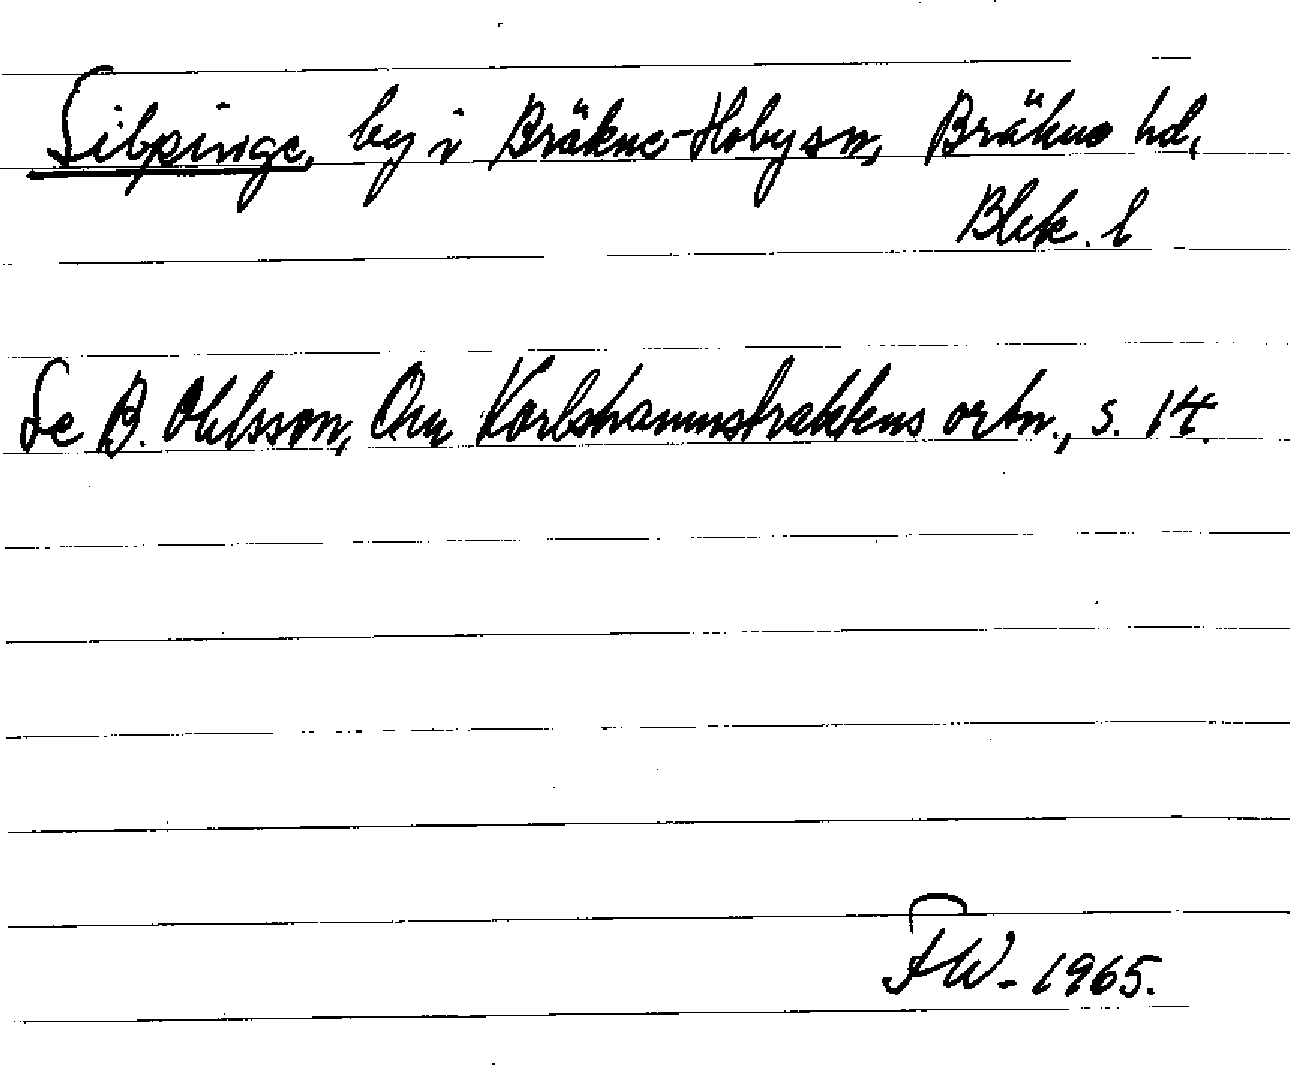 Silpinge, by i Bräkne-Hoby sn, Bräkne hd,
Blek. l
Se B. Ohlsson, Om Karlshamnstraktens ortn., s. 14.
FW - 1965.